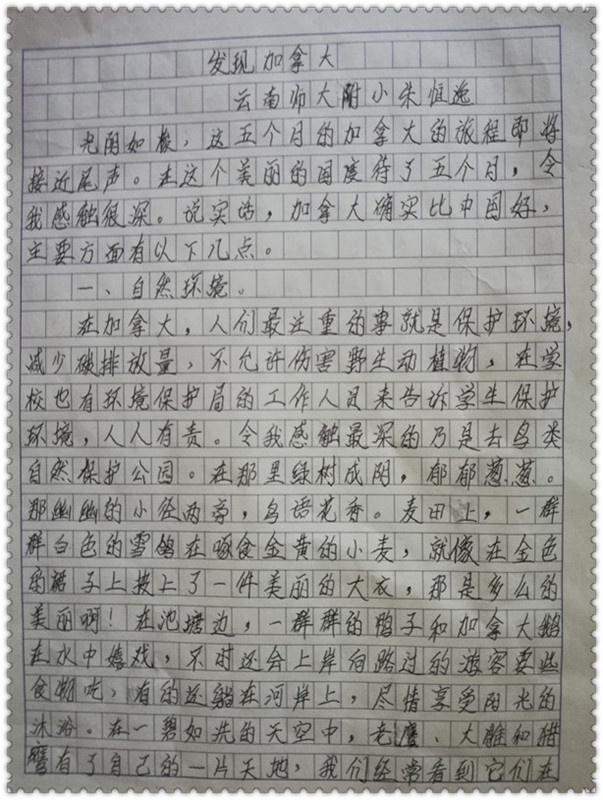 发现加拿大
云南师大附小朱恒逸
光阴如梭，这五个月的加拿大的旅程即将
接近尾声。在这个美丽的国度待了五个月，令
我感触很深。说实话，加拿大确实比中国好，
主要方面有以下几点。
一、自然环境。
在加拿大，人们最注重的事就是保护环境，
减少碳排放量，不允许伤害野生动植物，在学
校也有环境保护局的工作人员来告诉学生保护
环境，人人有责。令我感触最深的乃是去鸟类
自然保护公园。在那里绿树成阴，郁郁葱葱。
那幽幽的小径两旁，鸟语花香。麦田上，一群
群白色的雪鸽在啄食金黄的小麦，就像在金色
的裙子上披上了一件美丽的大衣，那是多么的
美丽啊！在池塘边，一群群的鸭子和加拿大鹅
在水中嬉戏，不时还会上岸向路过的游客要些
食物吃，有的还躺在河岸上，尽情享受阳光的
沐浴。在一碧如洗的天空中，老鹰、大雕和猎
鹰有了自己的一片天地，我们经常看到它们在